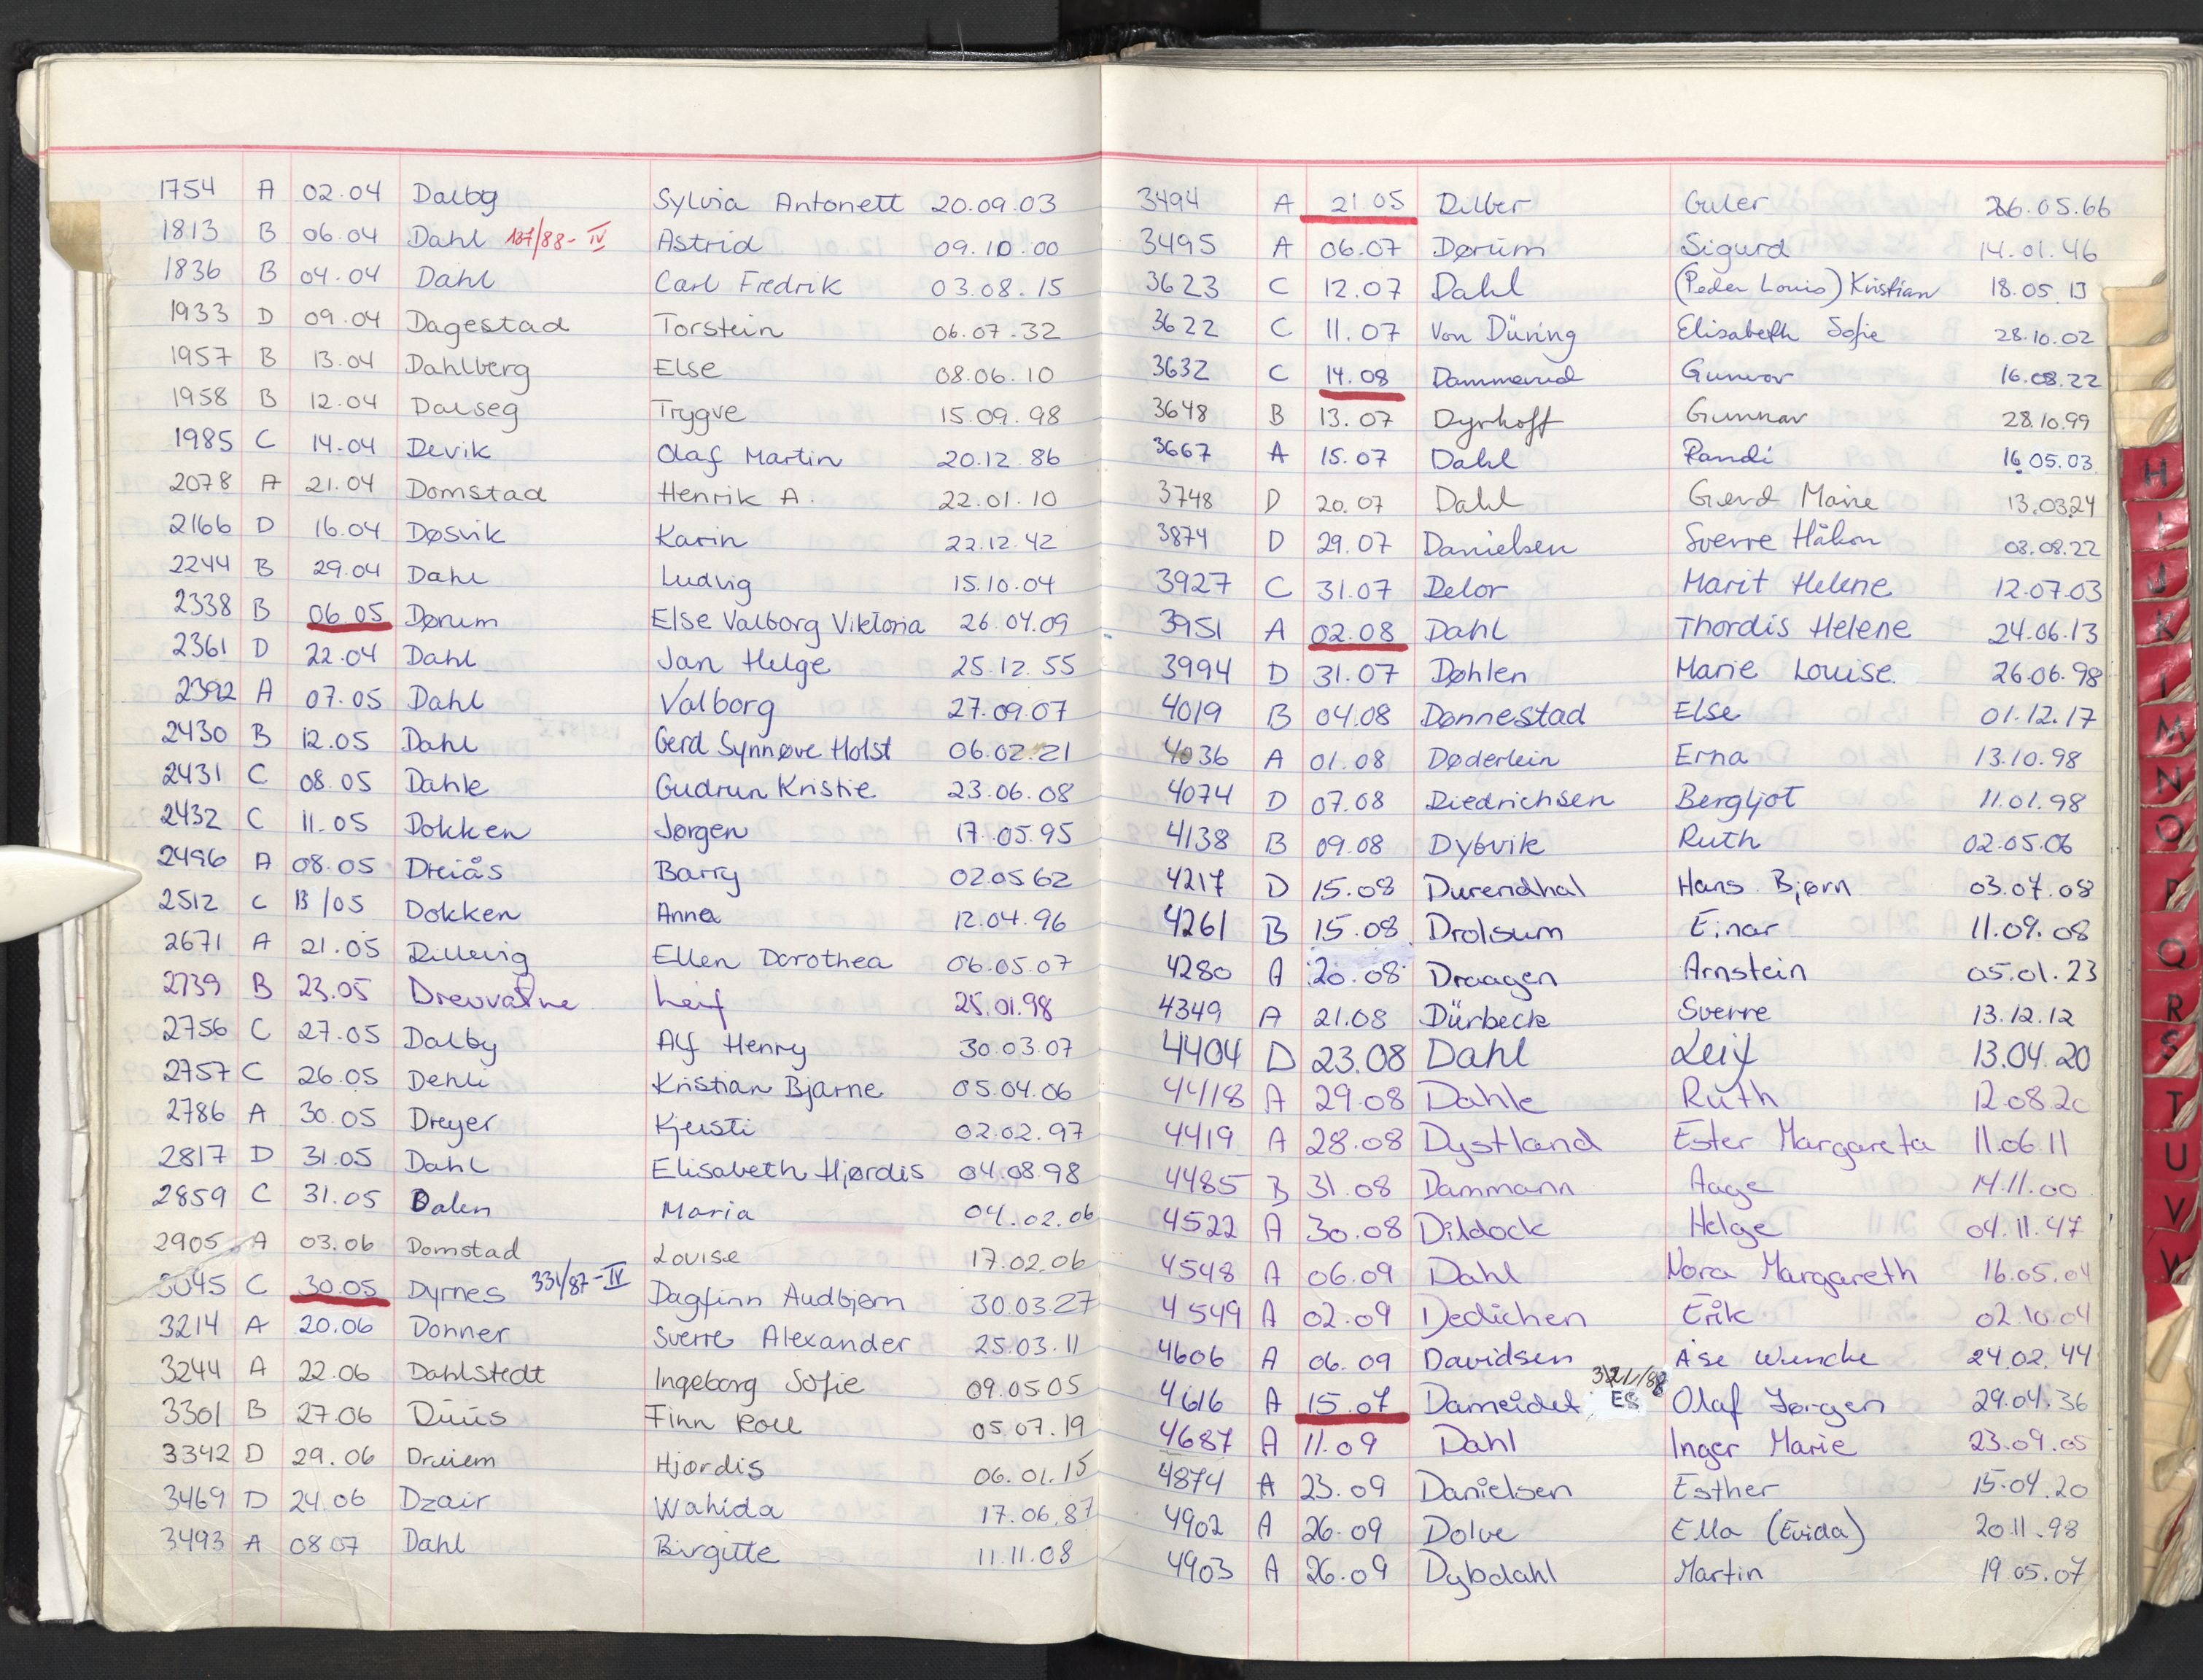 1754 A 02.04 Dalby Sylvia Antonett 20.09.03
1813 B 06.04 Dahl 137/88-IV Astrid 09.10.00
1836 B 04.04 Dahl Carl Fredrik 03.08.15
1933 D 09.04 Dagestad Torstein 06.07.32
1957 B 13.04 Dahlberg Else 08.06.10
1958 B 12.04 Dalseg Trygve 15.09.98
1985 C 14.04 Devik Olaf Martin 20.12.86
2078 A 21.04 Domstad Henrik A. 22.01.10
2166 D 16.04 Døsvik Karin 22.12.42
2244 B 29.04 Dahl Ludvig 15.10.04
2338 B 06.05 Dørum Else Valborg Viktoria 26.04.09
2361 D 22.04 Dahl Jan Helge 25.12.55
2392 A 07.05 Dahl Valborg 27.09.07
2430 B 12.05 Dahl Gerd Synnøve Holst 06.02.21
2431 C 08.05 Dahle Gudrun Kristie 23.06.08
2432 C 11.05 Dokken Jørgen 17.05.95
2496 A 08.05 Dreiås Barry 02.05 62
2512 C 13/05 Dokken Anna 12.04.96
2671 A 21.05 Dillevig Ellen Dorothea 06.05.07
2739 B 23.05 Drevvatne Leif 25.01.98
2756 C 27.05 Dalby Alf Henry 30.03.07
2757 C 26.05 Dehli Kristian Bjarne 05.04.06
2786 A 30.05 Dreyer Kjersti 02.02.97
2817 D 31.05 Dahl Elisabeth Hjørdis 04.08.98
2859 C 31.05 Dalen Maria 04.02.06
2905 A 03.06 Domstad Lovise 17.02.06
3045 C 30.05 Dyrnes 331/87-IV Dagfinn Audbjørn 30.03.27
3214 A 20.06 Donner Sverre Alexander 25.03.11
3244 A 22.06 Dahlstedt Ingeborg Sofie 09.05 05
3301 B 27.06 Düüs Finn Roll 05.07.19
3342 D 29.06 Dreiem Hjørdis 06.01.15
3469 D 24.06 Dzair Wahida 17.06.87
3493 A 08 07 Dahl Birgitte 11.11.08
3494 A 21 05 Dilber Guler 26.05.66
3495 A 06.07 Dørum Sigurd 14.01.46
3623 C 12.07 Dahl (Peder Louis) Kristian 18.05.13
3622 C 11.07 Von Düring Elisabeth Sofie 28.10.02
3632 C 14.08 Dammerud Gunvor 16.08.22
3648 B 13.07 Dyrhoff Gunnar 28.10.99
3667 A 15.07 Dahl Randi 16.05.03
3748 D 20.07 Dahl Gerd Marie 13.03.24
3874 D 29.07 Danielsen Sverre Håkon 03.08.22
3927 C 31.07 Delor Marit Helene 12.07.03
3951 A 02.08 Dahl Thordis Helene 24.06.13
3994 D 31.07 Døhlen Marie Louise. 26.06.98
4019 B 04.08 Dønnestad Else 01.12.17
4036 A 01.08 Døderlein Erna 13.10.98
4074 D 07.08 Diedrichsen Bergljot 11.01.98
4138 B 09.08 Dybvik Ruth 02.05.06
4217 D 15.08 Durendhal Hans Bjørn 03.07.08
4261 B 15.08 Drolsum Einar 11.09.08
4280 A 20.08 Draagen Arnstein 05.01.23
4349 A 21.08 Dürbeck Sverre 13.12.12
4404 D 23.08 Dahl Leif 13.04.20
4418 A 29.08 Dahle Ruth 12.08.20
4419 A 28.08 Dystland Ester Margareta 11.06.11
4485 B 31.08 Dammann Aage 14.11.00
4522 A 30.08 Dildock Helge 04.11.47
4548 A 06.09 Dahl Nora Margareth 16.05.04
4549 A 02.09 Dedichen Erik 02.10.04
4606 A 06.09 Davidsen Åse Wencke 24.02.44
4616 A 15.07 Dameidet ES Olaf Jørgen 29.04.36
4687 A 11.09 Dahl Inger Marie 23.09.05
4874 A 23.09 Danielsen Esther 15.04.20
4902 A 26.09 Dolve Ella (Evida) 20.11.98
4903 A 26.09 Dybdahl Martin 19.05.07
H
I
J
K
L
M
N
O
P
Q
R
S
T
U
V
W